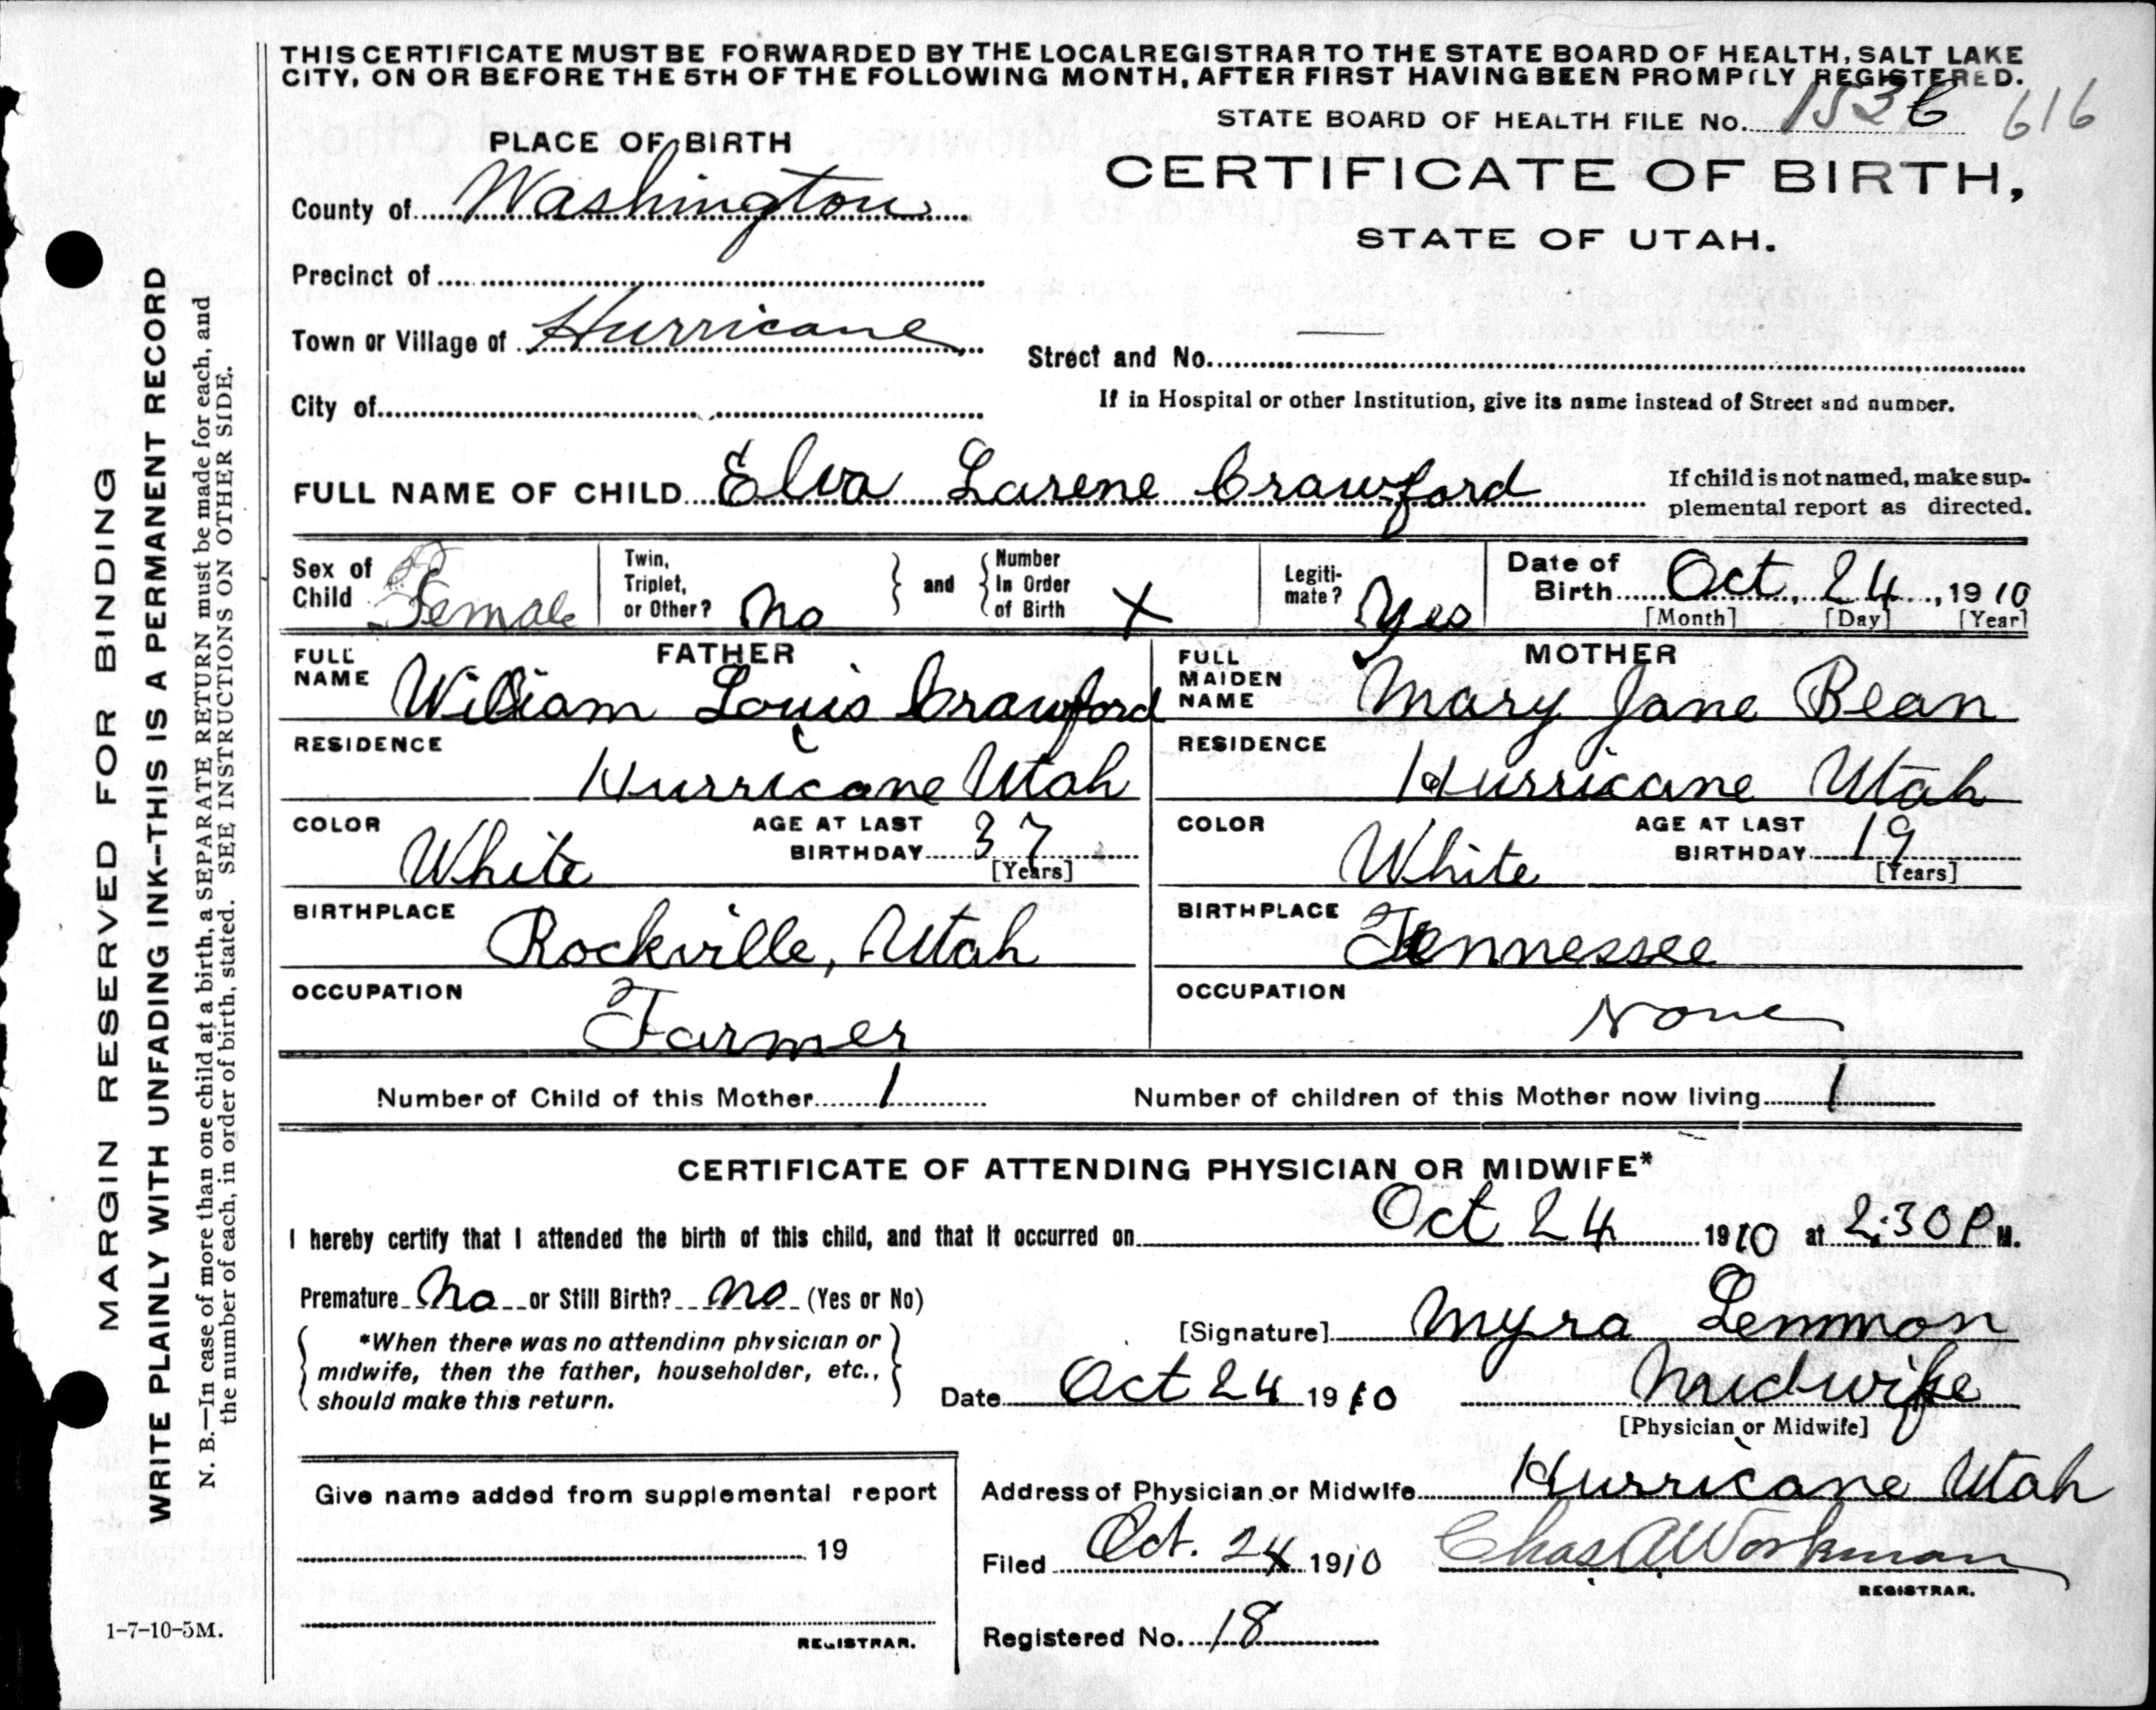 THIS CERTIFICATE MUST BE FORWARDED BY THE LOCAL REGISTRAR TO THE STATE BOARD OF HEALTH, SALT LAKE
CITY, ON OR BEFORE THE 5TH OF THE FOLLOWING MONTH, AFTER FIRST HAVING BEEN PROMPTLY REGISTERED.
STATE BOARD OF HEALTH FILE No. 1536 616
PLACE OF BIRTH
CERTIFICATE OF BIRTH,
STATE OF UTAH.
County of Washington
Precinct of
Town or Village of Hurricane
Street and No. —
City of
If in Hospital or other Institution, give its name instead of Street and number.
FULL NAME OF CHILD Elva Larene Crawford
If child is not named, make sup-
plemental report as directed.
Sex of Child Female
Twin, Triplet, or Other? No
and
Number In Order of Birth X
Legiti-mate? Yes
Date of Birth Oct. 24, 1910
[Month] [Day] [Year]
FATHER
FULL NAME William Louis Crawford
RESIDENCE Hurricane Utah
COLOR White
AGE AT LAST BIRTHDAY 37
[Years]
BIRTHPLACE Rockville, Utah
OCCUPATION Farmer
MOTHER
FULL MAIDEN NAME Mary Jane Bean
RESIDENCE Hurricane Utah
COLOR White
AGE AT LAST BIRTHDAY 19
[Years]
BIRTHPLACE Tennessee
OCCUPATION None
Number of Child of this Mother 1
Number of children of this Mother now living 1
CERTIFICATE OF ATTENDING PHYSICIAN OR MIDWIFE*
I hereby certify that I attended the birth of this child, and that it occurred on Oct 24 1910 at 2:30 P M.
Premature No or Still Birth? No (Yes or No)
*When there was no attending physician or
midwife, then the father, householder, etc.,
should make this return.
[Signature] Myra Lemmon
Date Oct 24 1910 Midwife
[Physician or Midwife]
Give name added from supplemental report
19
REGISTRAR.
Address of Physician or Midwife Hurricane Utah
Filed Oct. 24 1910 Chas A Workman
REGISTRAR.
Registered No. 18
1-7-10-5M.
MARGIN RESERVED FOR BINDING
WRITE PLAINLY WITH UNFADING INK--THIS IS A PERMANENT RECORD
N. B.—In case of more than one child at a birth, a SEPARATE RETURN must be made for each, and
the number of each, in order of birth, stated. SEE INSTRUCTIONS ON OTHER SIDE.